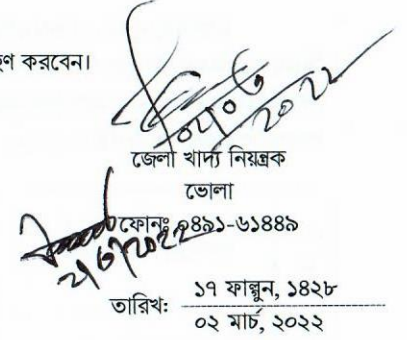 হণ করবেন।
০২/০৩/২০২২
জেলা খাদ্য নিয়ন্ত্রক
ভোলা
ফোনঃ ০৪৯১-৬১৪৪৯
২/৩/২০২২
তারিখ: ১৭ ফাল্গুন, ১৪২৮
০২ মার্চ, ২০২২